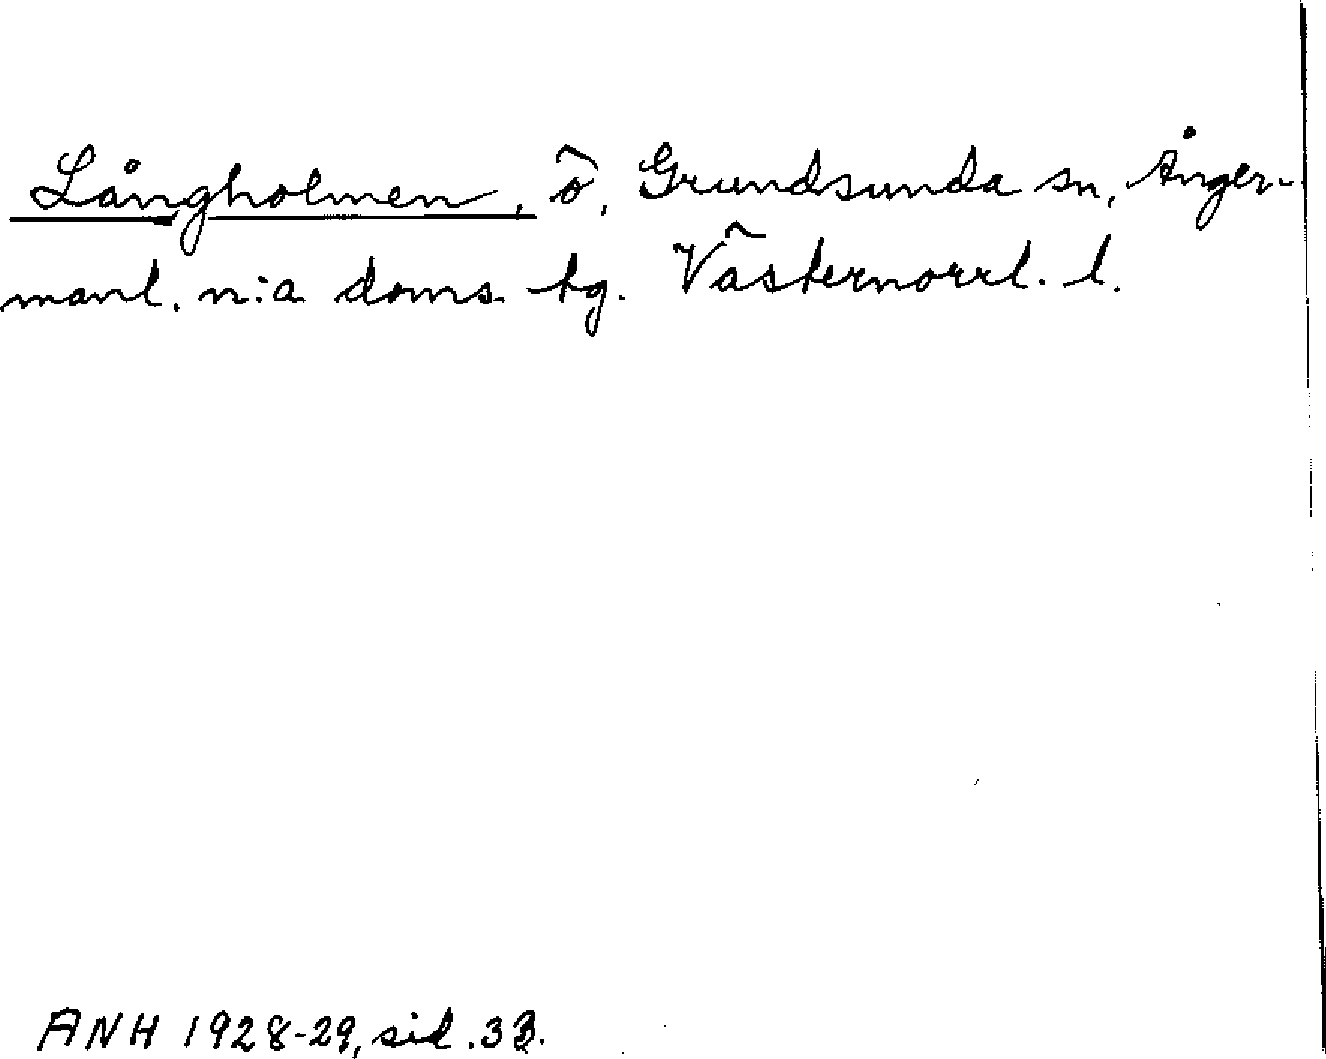 Långholmen, ö, Grundsunda sn, Ånger-
manl. n:a doms. tg. Västernorrl. l.
ANH 1928-29, sid. 33.